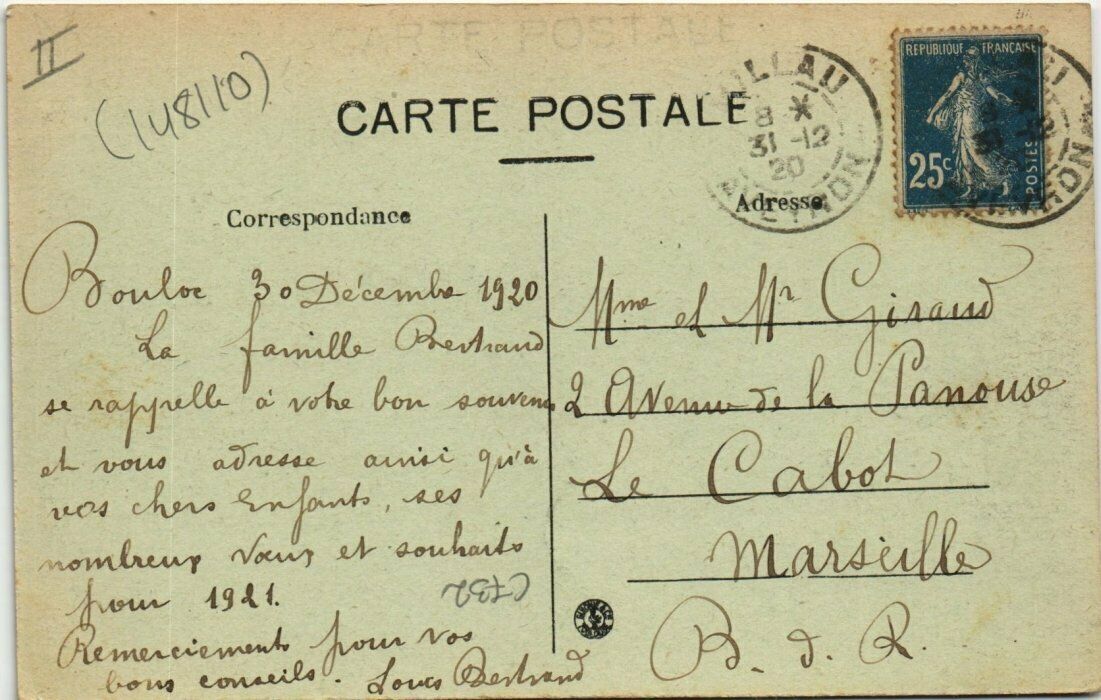 II
(148110)
CARTE POSTALE
REPUBLIQUE FRANÇAISE
25c
POSTES
8 *
31 -12
20
AVEYRON
Correspondance
Adresse
Bouloc 30 Décembre 1920
La famille Bertrand
se rappelle à votre bon souvenir
et vous adresse ainsi qu'à
vos chers Enfants, ses
nombreux Vœux et souhaits
pour 1921.
Remerciements pour vos
bons conseils. Louis Bertrand
C732
Mme et Mr Giraud
2 Avenue de la Panouse
Le Cabot
Marseille
B. d. R.